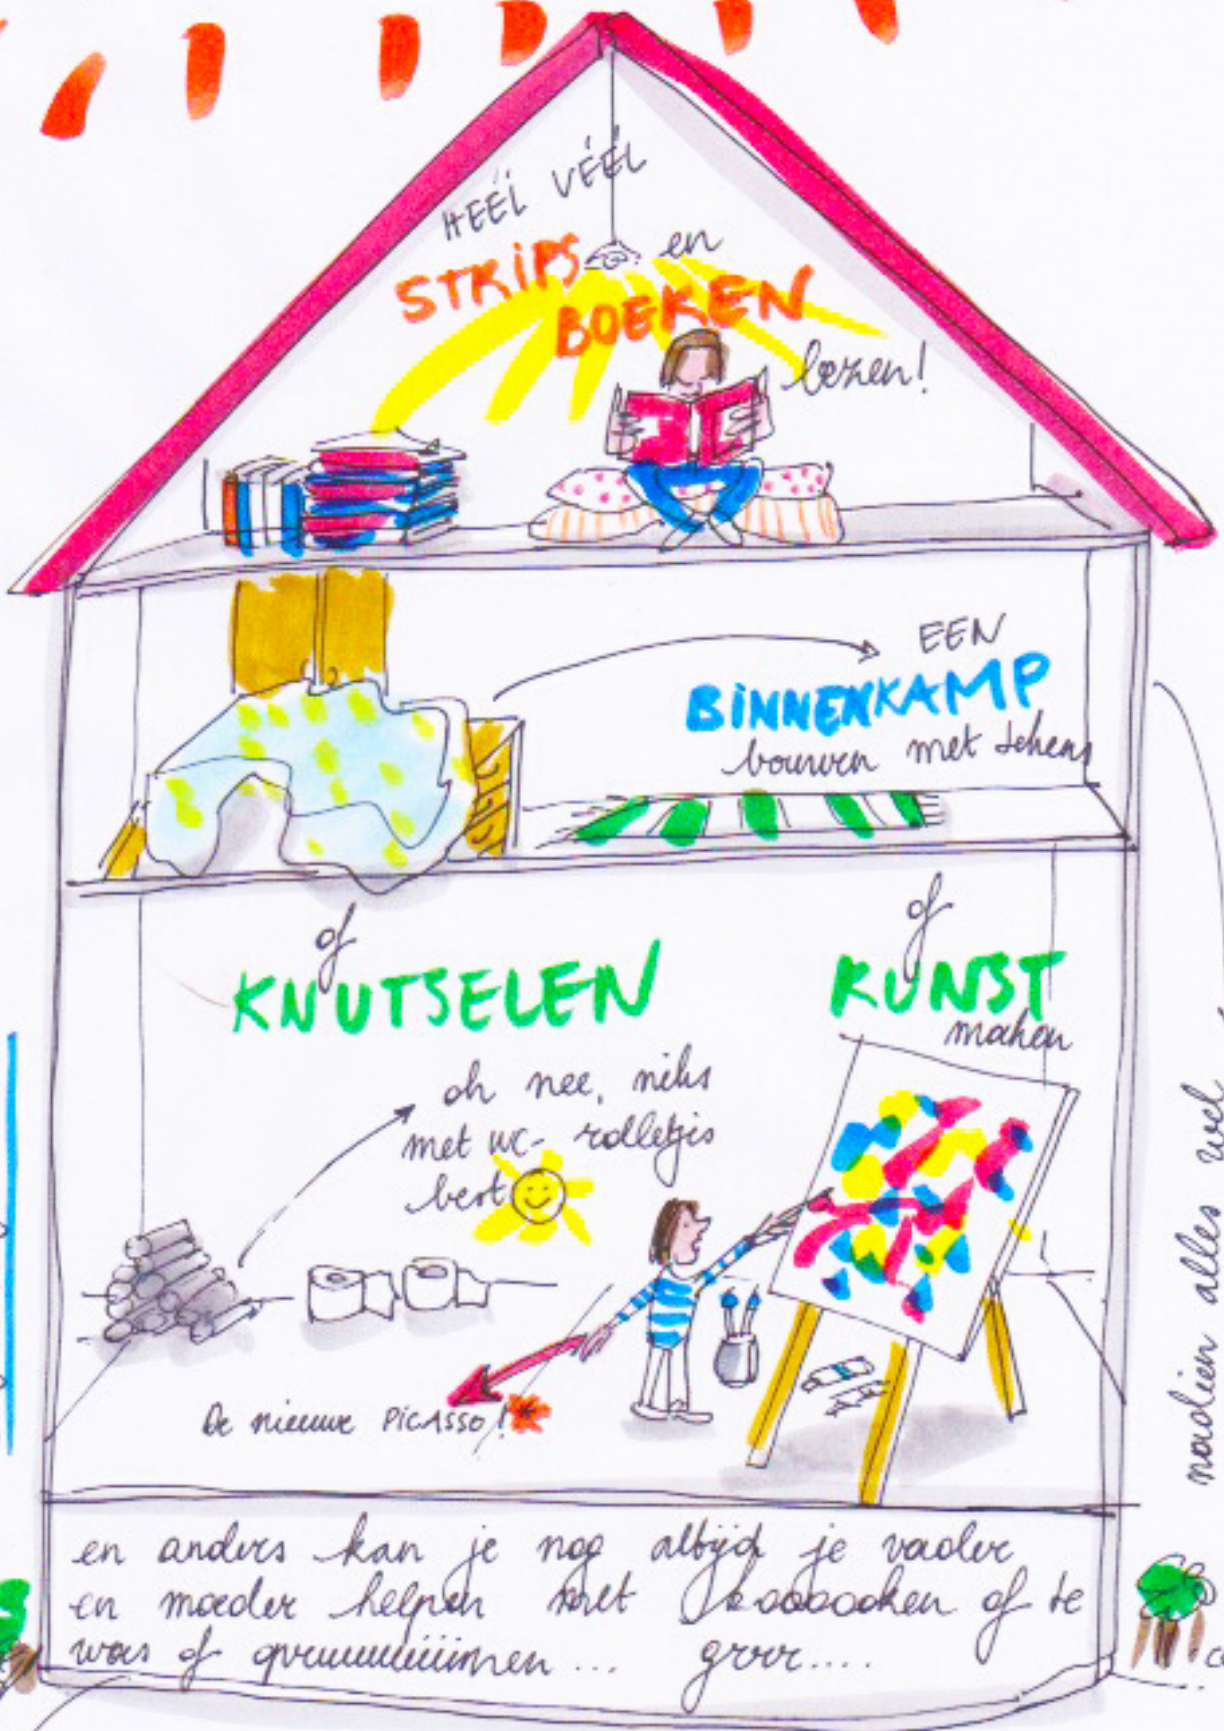 HEÉL VÉÉL
STRIPS en
BOEKEN
lezen!
EEN
BINNENKAMP
bouwen met dekens
of
KNUTSELEN
of
KUNST
maken
oh nee, niks
met wc-rolletjes
best
De nieuwe PICASSO!
en anders kan je nog altijd je vader
en moeder helpen met koooooken of de
was of opruuuuuüüimen... grrr....
nadien alles wel